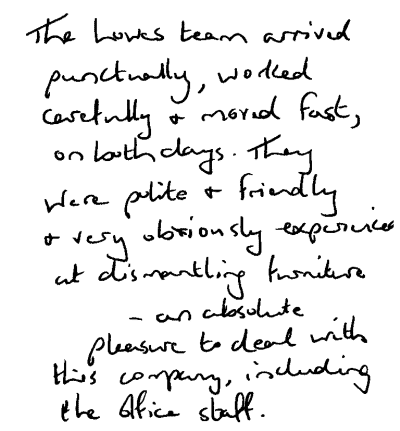 The Lowes team arrived
punctually, worked
carefully + moved fast,
on both days. They
were polite + friendly
+ very obviously experienced
at dismantling furniture
- an absolute
pleasure to deal with
this company, including
the office staff.